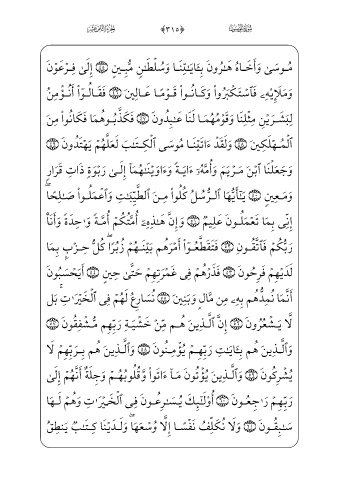 سورة المؤمنون ﴿٣١٥﴾ الجزء الثامن عشر
مُوسَىٰ وَأَخَاهُ هَٰرُونَ بِـَٔايَٰتِنَا وَسُلْطَٰنٍ مُّبِينٍ إِلَىٰ فِرْعَوْنَ
وَمَلَإِيْهِۦ فَٱسْتَكْبَرُوا۟ وَكَانُوا۟ قَوْمًا عَالِينَ فَقَالُوٓا۟ أَنُؤْمِنُ
لِبَشَرَيْنِ مِثْلِنَا وَقَوْمُهُمَا لَنَا عَٰبِدُونَ فَكَذَّبُوهُمَا فَكَانُوا۟ مِنَ
ٱلْمُهْلَكِينَ وَلَقَدْ ءَاتَيْنَا مُوسَى ٱلْكِتَٰبَ لَعَلَّهُمْ يَهْتَدُونَ
وَجَعَلْنَا ٱبْنَ مَرْيَمَ وَأُمَّهُۥٓ ءَايَةً وَءَاوَيْنَٰهُمَآ إِلَىٰ رَبْوَةٍ ذَاتِ قَرَارٍ
وَمَعِينٍ يَٰٓأَيُّهَا ٱلرُّسُلُ كُلُوا۟ مِنَ ٱلطَّيِّبَٰتِ وَٱعْمَلُوا۟ صَٰلِحًا
إِنِّى بِمَا تَعْمَلُونَ عَلِيمٌ وَإِنَّ هَٰذِهِۦٓ أُمَّتُكُمْ أُمَّةً وَٰحِدَةً وَأَنَا۠
رَبُّكُمْ فَٱتَّقُونِ فَتَقَطَّعُوٓا۟ أَمْرَهُم بَيْنَهُمْ زُبُرًا كُلُّ حِزْبٍۭ بِمَا
لَدَيْهِمْ فَرِحُونَ فَذَرْهُمْ فِى غَمْرَتِهِمْ حَتَّىٰ حِينٍ أَيَحْسَبُونَ
أَنَّمَا نُمِدُّهُم بِهِۦ مِن مَّالٍ وَبَنِينَ نُسَارِعُ لَهُمْ فِى ٱلْخَيْرَٰتِ بَل
لَّا يَشْعُرُونَ إِنَّ ٱلَّذِينَ هُم مِّنْ خَشْيَةِ رَبِّهِم مُّشْفِقُونَ
وَٱلَّذِينَ هُم بِـَٔايَٰتِ رَبِّهِمْ يُؤْمِنُونَ وَٱلَّذِينَ هُم بِرَبِّهِمْ لَا
يُشْرِكُونَ وَٱلَّذِينَ يُؤْتُونَ مَآ ءَاتَوا۟ وَّقُلُوبُهُمْ وَجِلَةٌ أَنَّهُمْ إِلَىٰ
رَبِّهِمْ رَٰجِعُونَ أُو۟لَٰٓئِكَ يُسَٰرِعُونَ فِى ٱلْخَيْرَٰتِ وَهُمْ لَهَا
سَٰبِقُونَ وَلَا نُكَلِّفُ نَفْسًا إِلَّا وُسْعَهَا وَلَدَيْنَا كِتَٰبٌ يَنطِقُ